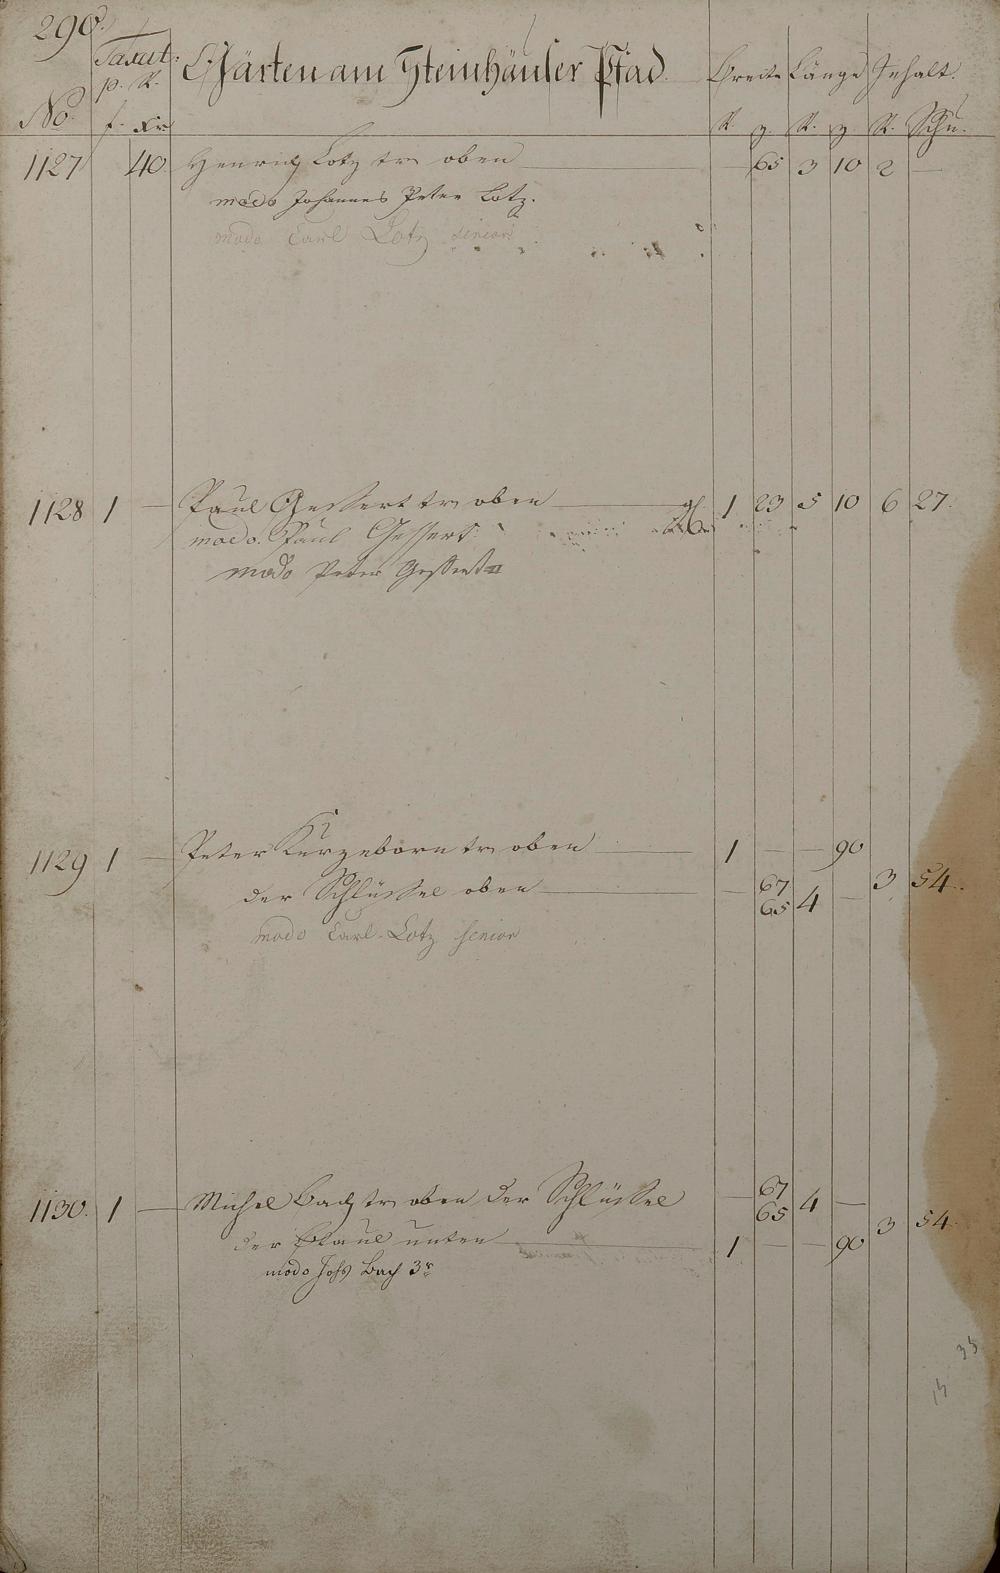 290.
No. Taxat: p. R. f. Xr Gärten am Steinhäuser Pfad. Breite Länge Inhalt.
R. g. R. g R. Schu.
1127 40. Henrich Lotz tr oben — 65 3 10 2 —
modo Johannes Peter Lotz.
modo Carl Lotz senior
1128 1 — Paul Gessert tr oben — 1 23 5 10 6 27.
modo. Paul Gessert
modo Peter Gessert
1129 1 — Peter Kurzeborn tr oben — 1 — — 90
der Schlüssel oben — 67 65 4 — 3 54.
modo Carl Lotz senior
1130. 1 — Michel Bach tr oben der Schlüssel — 67 65 4 — 3 54.
der unten — 1 — — 90
modo Johs Bach 3r